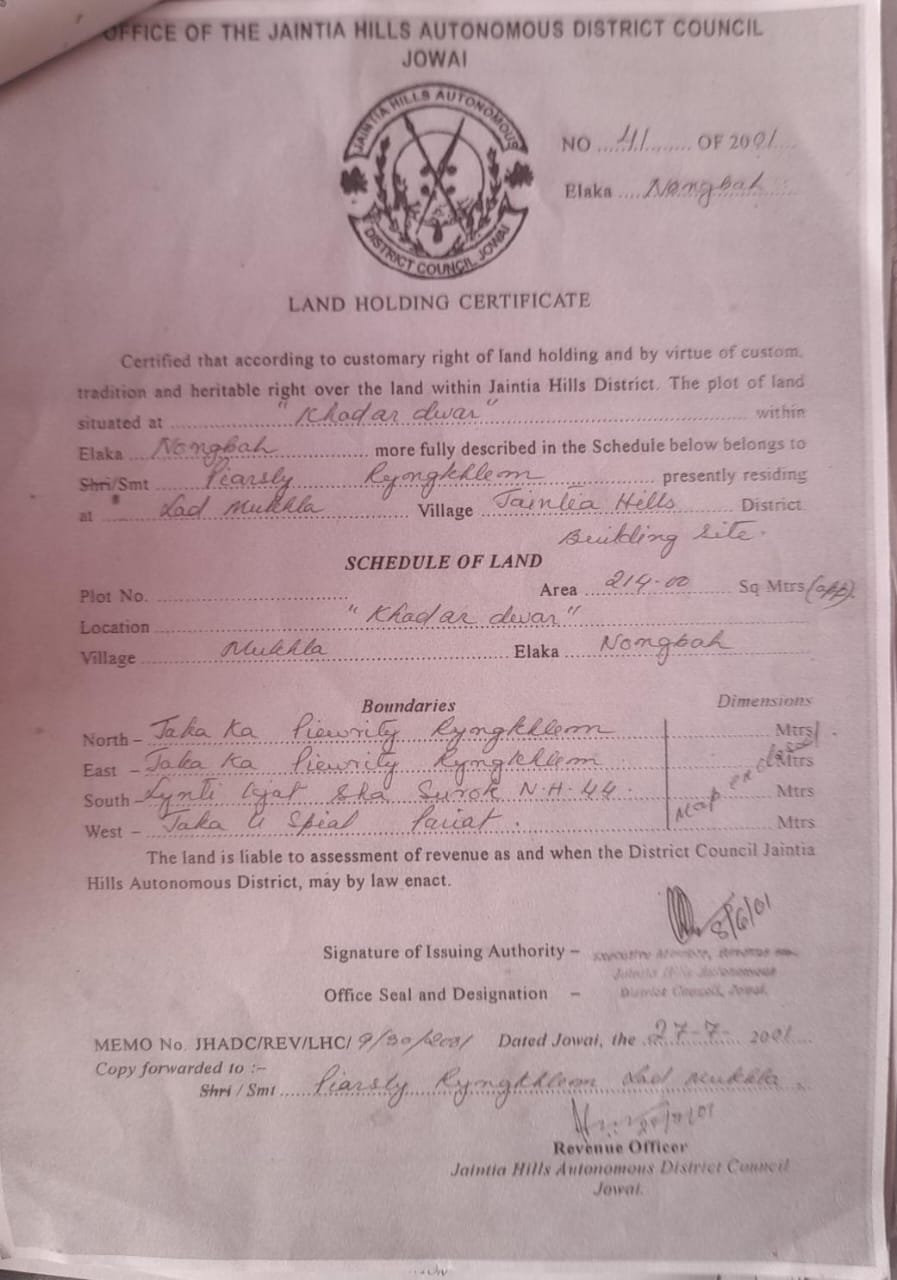 OFFICE OF THE JAINTIA HILLS AUTONOMOUS DISTRICT COUNCIL
JOWAI
JAINTIA HILLS AUTONOMOUS
DISTRICT COUNCIL JOWAI
NO ...41....... OF 2001
Elaka .... Nongbah
LAND HOLDING CERTIFICATE
Certified that according to customary right of land holding and by virtue of custom,
tradition and heritable right over the land within Jaintia Hills District. The plot of land
situated at "Khadar dwar" within
Elaka Nongbah more fully described in the Schedule below belongs to
Shri/Smt Piarsly Ryongkhlem presently residing
at Lad Mukhla Village Jaintia Hills District
Building site.
SCHEDULE OF LAND
Plot No. Area 214.00 Sq Mtrs (app).
Location "Khadar dwar"
Village Mukhla Elaka Nongbah
Boundaries Dimensions
North – Jaka Ka Piewrity Ryngkhlem Mtrs
East – Jaka Ka Piewrity Ryngkhlem Mtrs
South – Lynti Sha Surok N.H.44. Mtrs
West – Jaka U Spial Pariat. Mtrs
Map enclosed
The land is liable to assessment of revenue as and when the District Council Jaintia
Hills Autonomous District, may by law enact.
8/6/01
Signature of Issuing Authority – Executive Member, Revenue
Jaintia Hills Autonomous
Office Seal and Designation – District Council, Jowai.
MEMO No. JHADC/REV/LHC/ 9/30/2001 Dated Jowai, the 27-7- 2001
Copy forwarded to :–
Shri / Smt Piarsly Ryngkhlem Lad Mukhla
Revenue Officer
Jaintia Hills Autonomous District Council
Jowai.